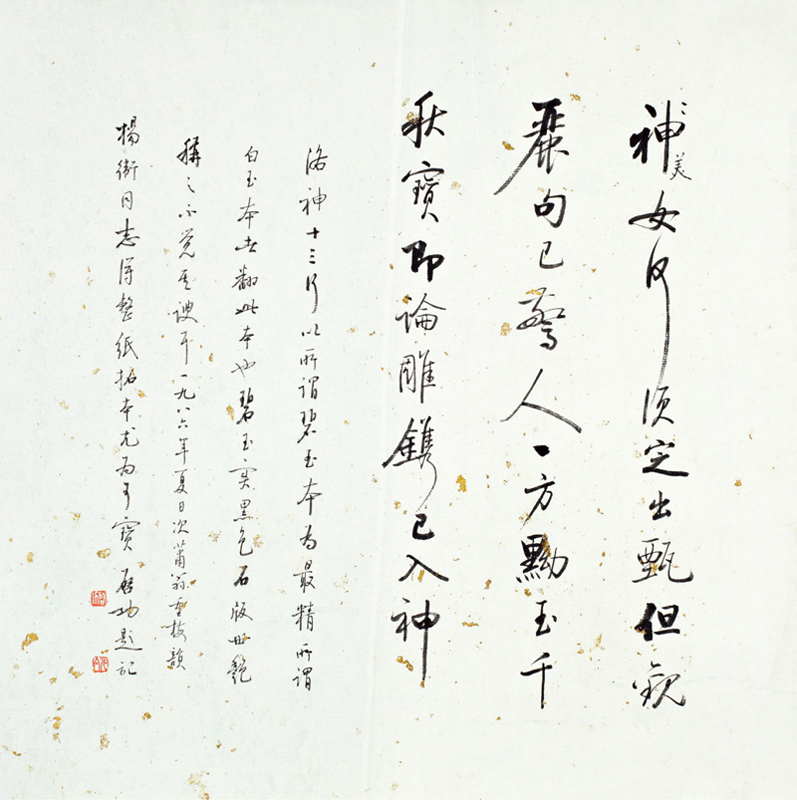 神美女何須定出甄但觀
麗句已驚人一方黝玉千
秋寶即論雕鐫已入神
洛神十三行以所謂碧玉本為最精所謂
白玉本者翻此本也碧玉實黑色石版世艷
稱之不覺其謏耳一九八六年夏日次翁重韻
楊衛同志得整紙拓本尤為可寶 啟功題記